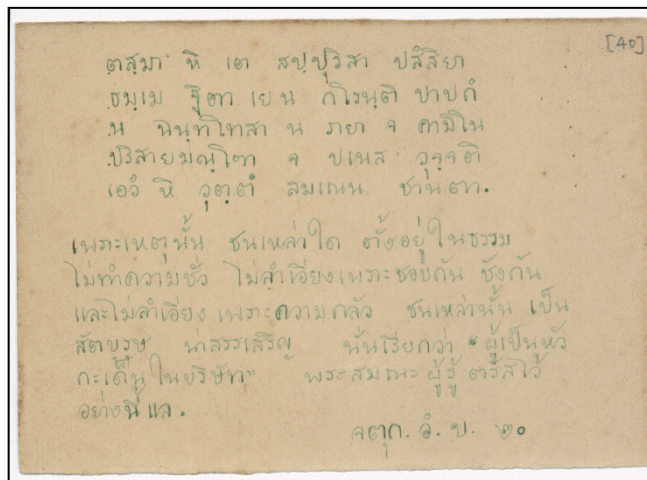 [40]
ตสฺมา หิ เต สปฺปุริสา ปสํสิยา
ธมฺเม ฐิตา เย น กโรนฺติ ปาปกํ
น ฉนฺทโทสา น ภยา จ คามิโน
ปริสายมณฺโฑ จ ปเนส วุจฺจติ
เอวํ หิ วุตฺตํ สมเณน ชานตา.
เพราะเหตุนั้น ชนเหล่าใด ตั้งอยู่ในธรรม
ไม่ทำความชั่ว ไม่ลำเอียงเพราะชอบกัน ชังกัน
และไม่ลำเอียง เพราะความกลัว ชนเหล่านั้น เป็น
สัตบุรุษ น่าสรรเสริญ นั่นเรียกว่า "ผู้เป็นหัว
กะเดนในบริษัท" พระสมณะผู้รู้ ตรัสไว้
อย่างนี้แล.
จตุก. อํ. ข. ๒๐